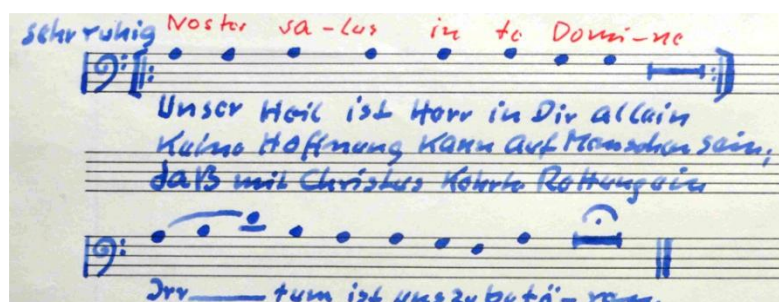 sehr ruhig Noster sa-lus in te Domi-ne
Unser Heil ist Herr in Dir allein
Keine Hoffnung kann auf Menschen sein,
daß mit Christus Kehrte Rettung ein
Irr tum ist uns zu betö-ren.